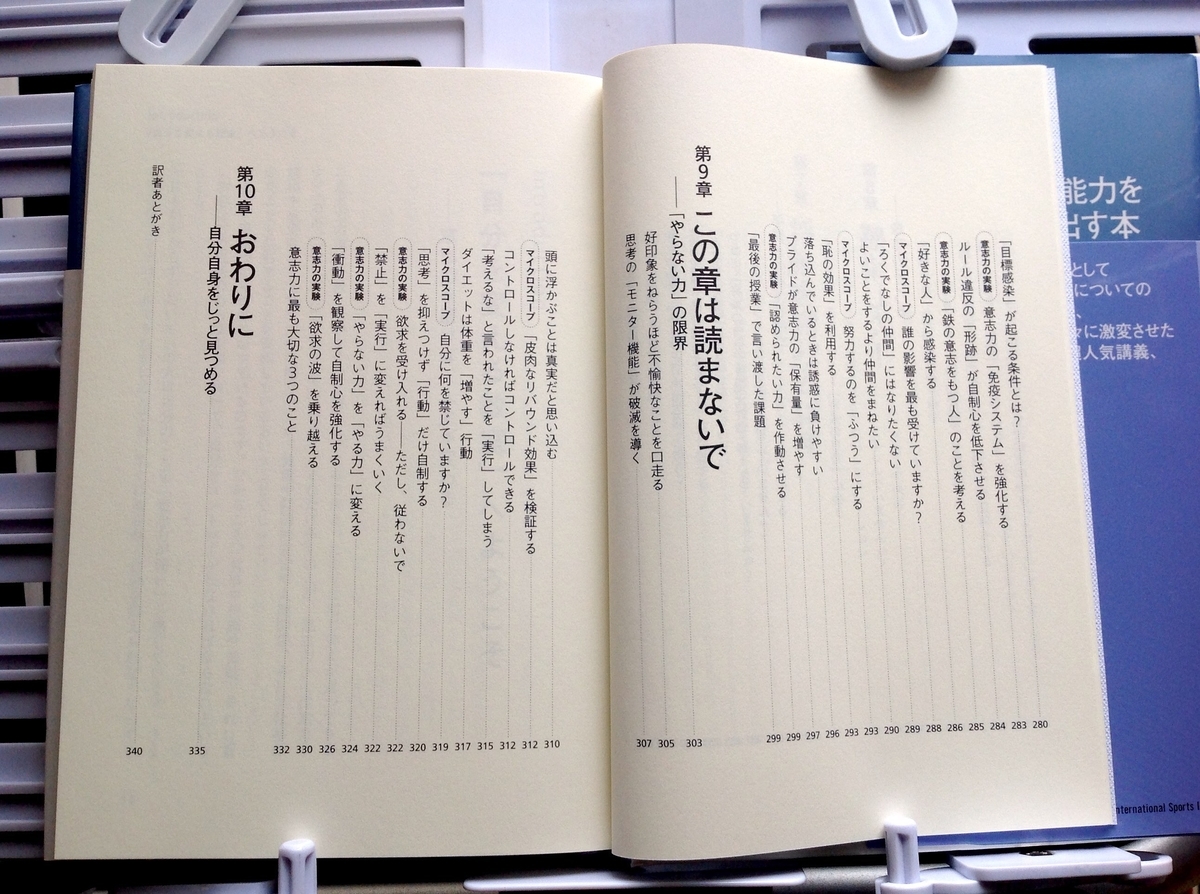 「目標感染」が起こる条件とは? 280
意志力の実験 意志力の「免疫システム」を強化する 283
ルール違反の「形跡」が自制心を低下させる 284
意志力の実験 「鉄の意志をもつ人」のことを考える 285
「好きな人」から感染する 286
マイクロスコープ 誰の影響を最も受けていますか? 288
「ろくでなしの仲間」にはなりたくない 289
よいことをするより仲間をまねたい 290
マイクロスコープ 努力するのを「ふつう」にする 293
「恥の効果」を利用する 293
落ち込んでいるときは誘惑に負けやすい 296
プライドが意志力の「保有量」を増やす 297
意志力の実験 「認められたい力」を作動させる 299
「最後の授業」で言い渡した課題 299
第9章 この章は読まないで
——「やらない力」の限界 303
好印象をねらうほど不愉快なことを口走る 305
思考の「モニター機能」が破滅を導く 307
頭に浮かぶことは真実だと思い込む 310
マイクロスコープ 「皮肉なリバウンド効果」を検証する 312
コントロールしなければコントロールできる 312
「考えるな」と言われたことを「実行」してしまう 315
ダイエットは体重を「増やす」行動 317
マイクロスコープ 自分に何を禁じていますか? 319
「思考」を抑えつけず「行動」だけ自制する 320
意志力の実験 欲求を受け入れる——ただし、従わないで 322
「禁止」を「実行」に変えればうまくいく 322
意志力の実験 「やらない力」を「やる力」に変える 324
「衝動」を観察して自制心を強化する 326
意志力の実験 「欲求の波」を乗り越える 330
意志力に最も大切な3つのこと 332
第10章 おわりに
——自分自身をじっと見つめる 335
訳者あとがき 340
能力を
出す本
として
についての
に激変させた
人気講義、
nternational Sports